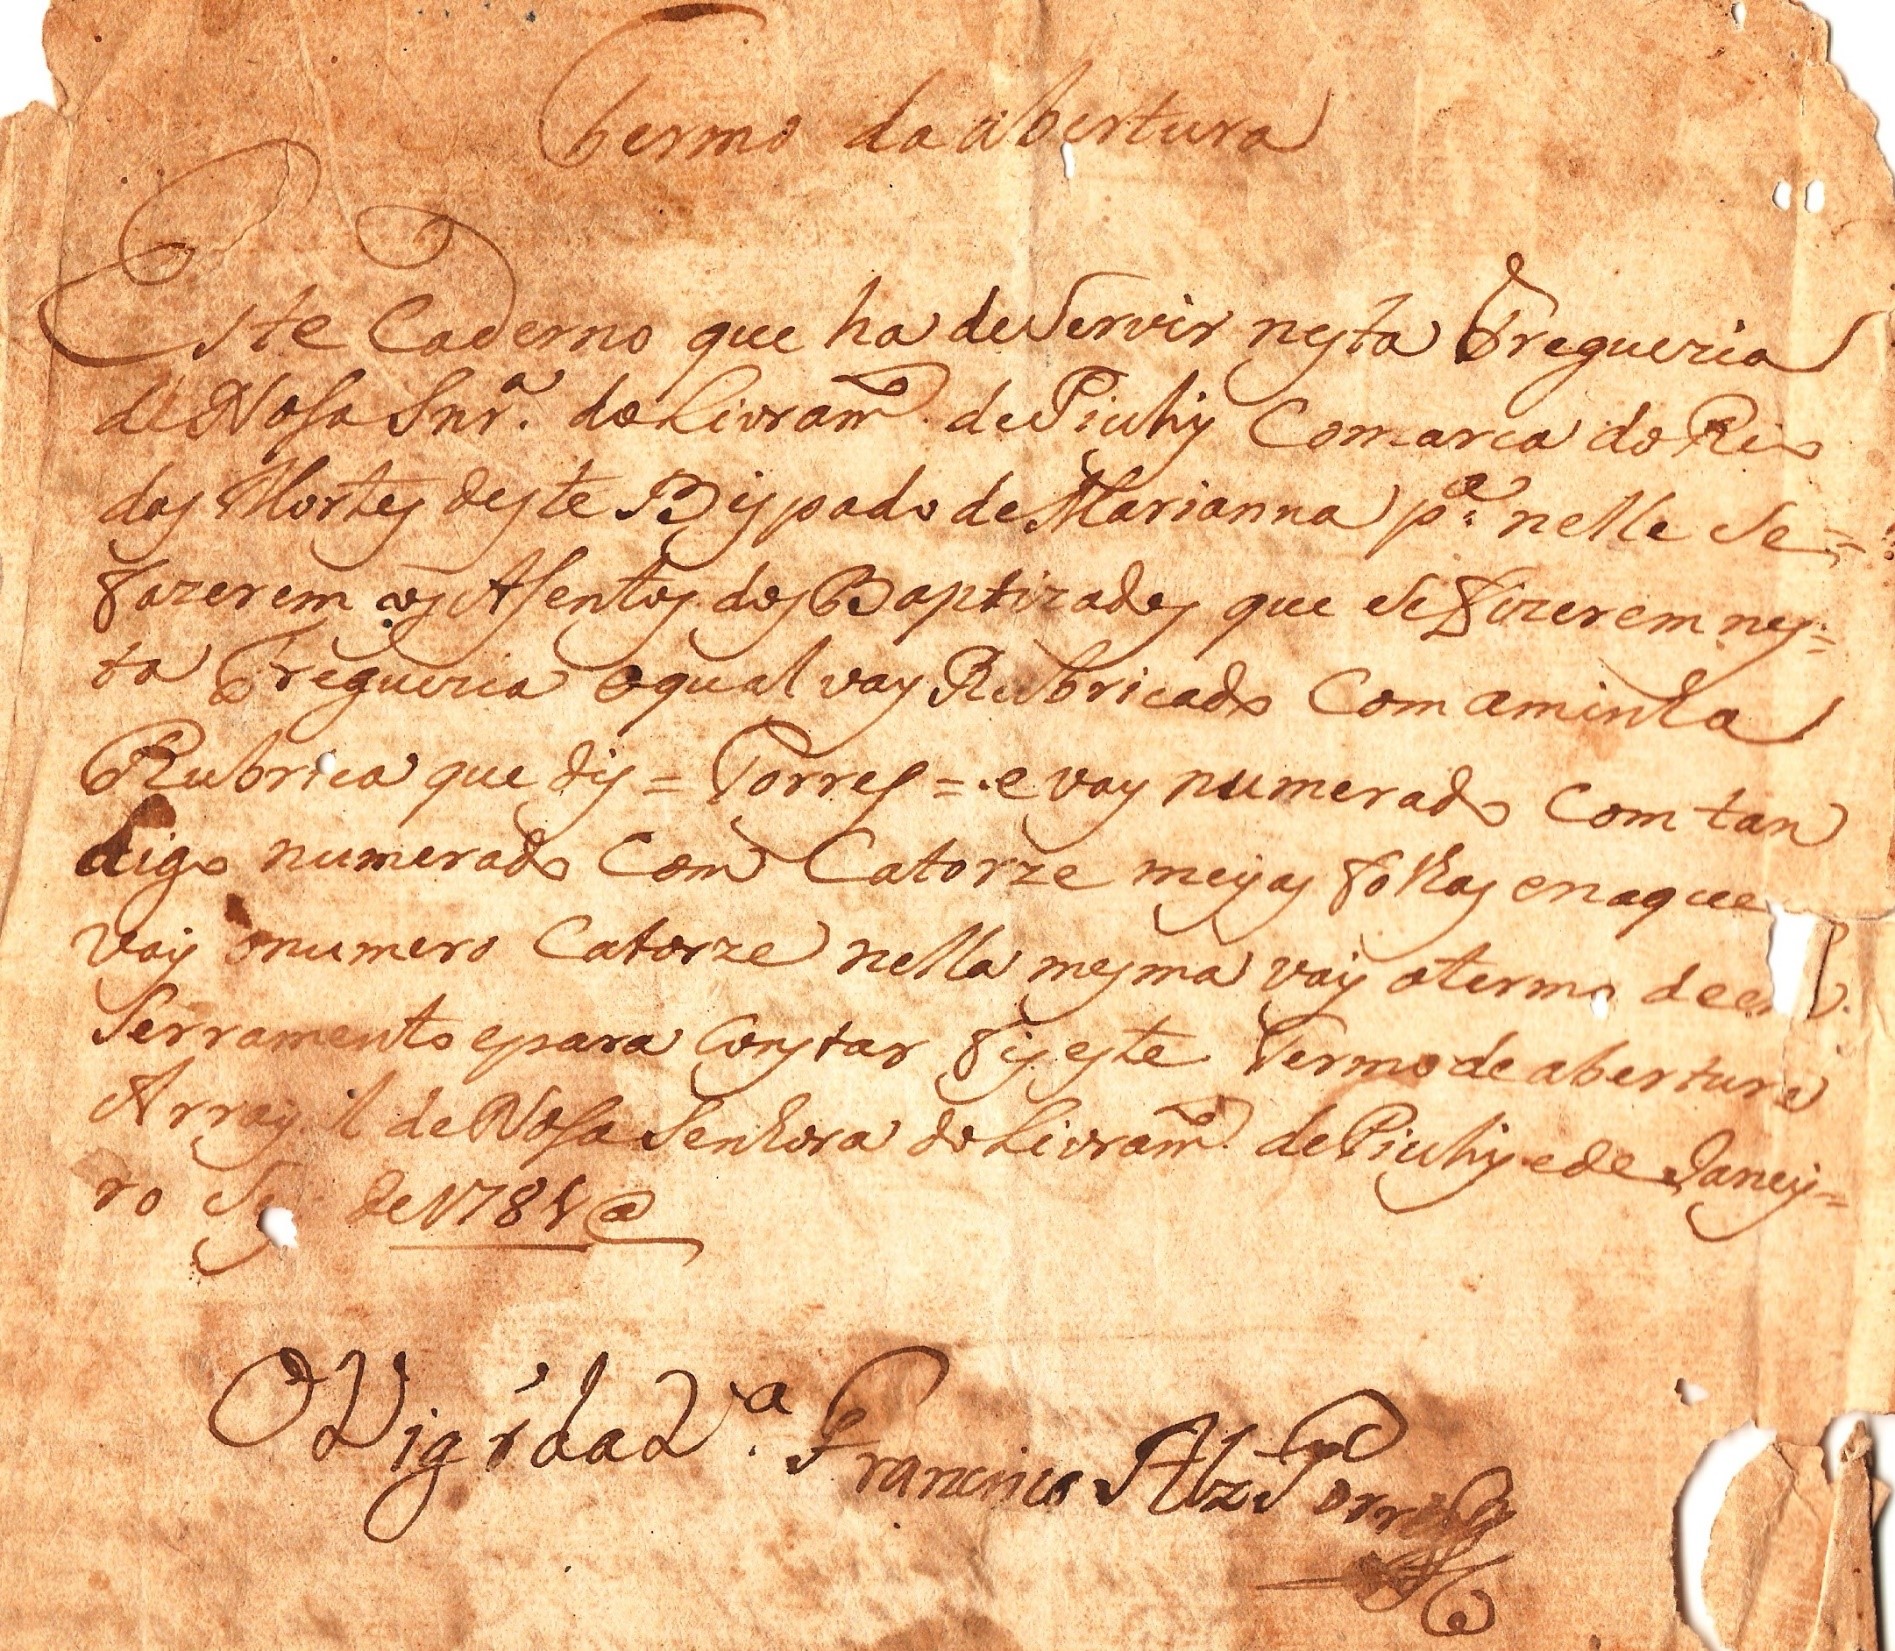 Termo da abertura
Este Caderno que ha de Servir nesta Freguezia
de Nosa Snr.ª do Livram.to de Piuhy Comarca do Rio
das Mortes deste Bispado de Marianna p.ª nelle se=
fazerem os Asentos dos Baptizados que se fizerem nes=
ta Freguezia o qual vay Rubricado Com a minha
Rubrica que dis = Torres = e vay numerado Com tan
digo numerado Com Catorze meyas folhas e na que
vay o numero Catorze nella mesma vay o termo de en
Serramento e para Constar fis este Termo de abertura
Array.l de Nosa Senhora do Livram.to de Piuhy e de Janey=
ro de 178
O Vigr.º da V.ª Francisco Alz Torres